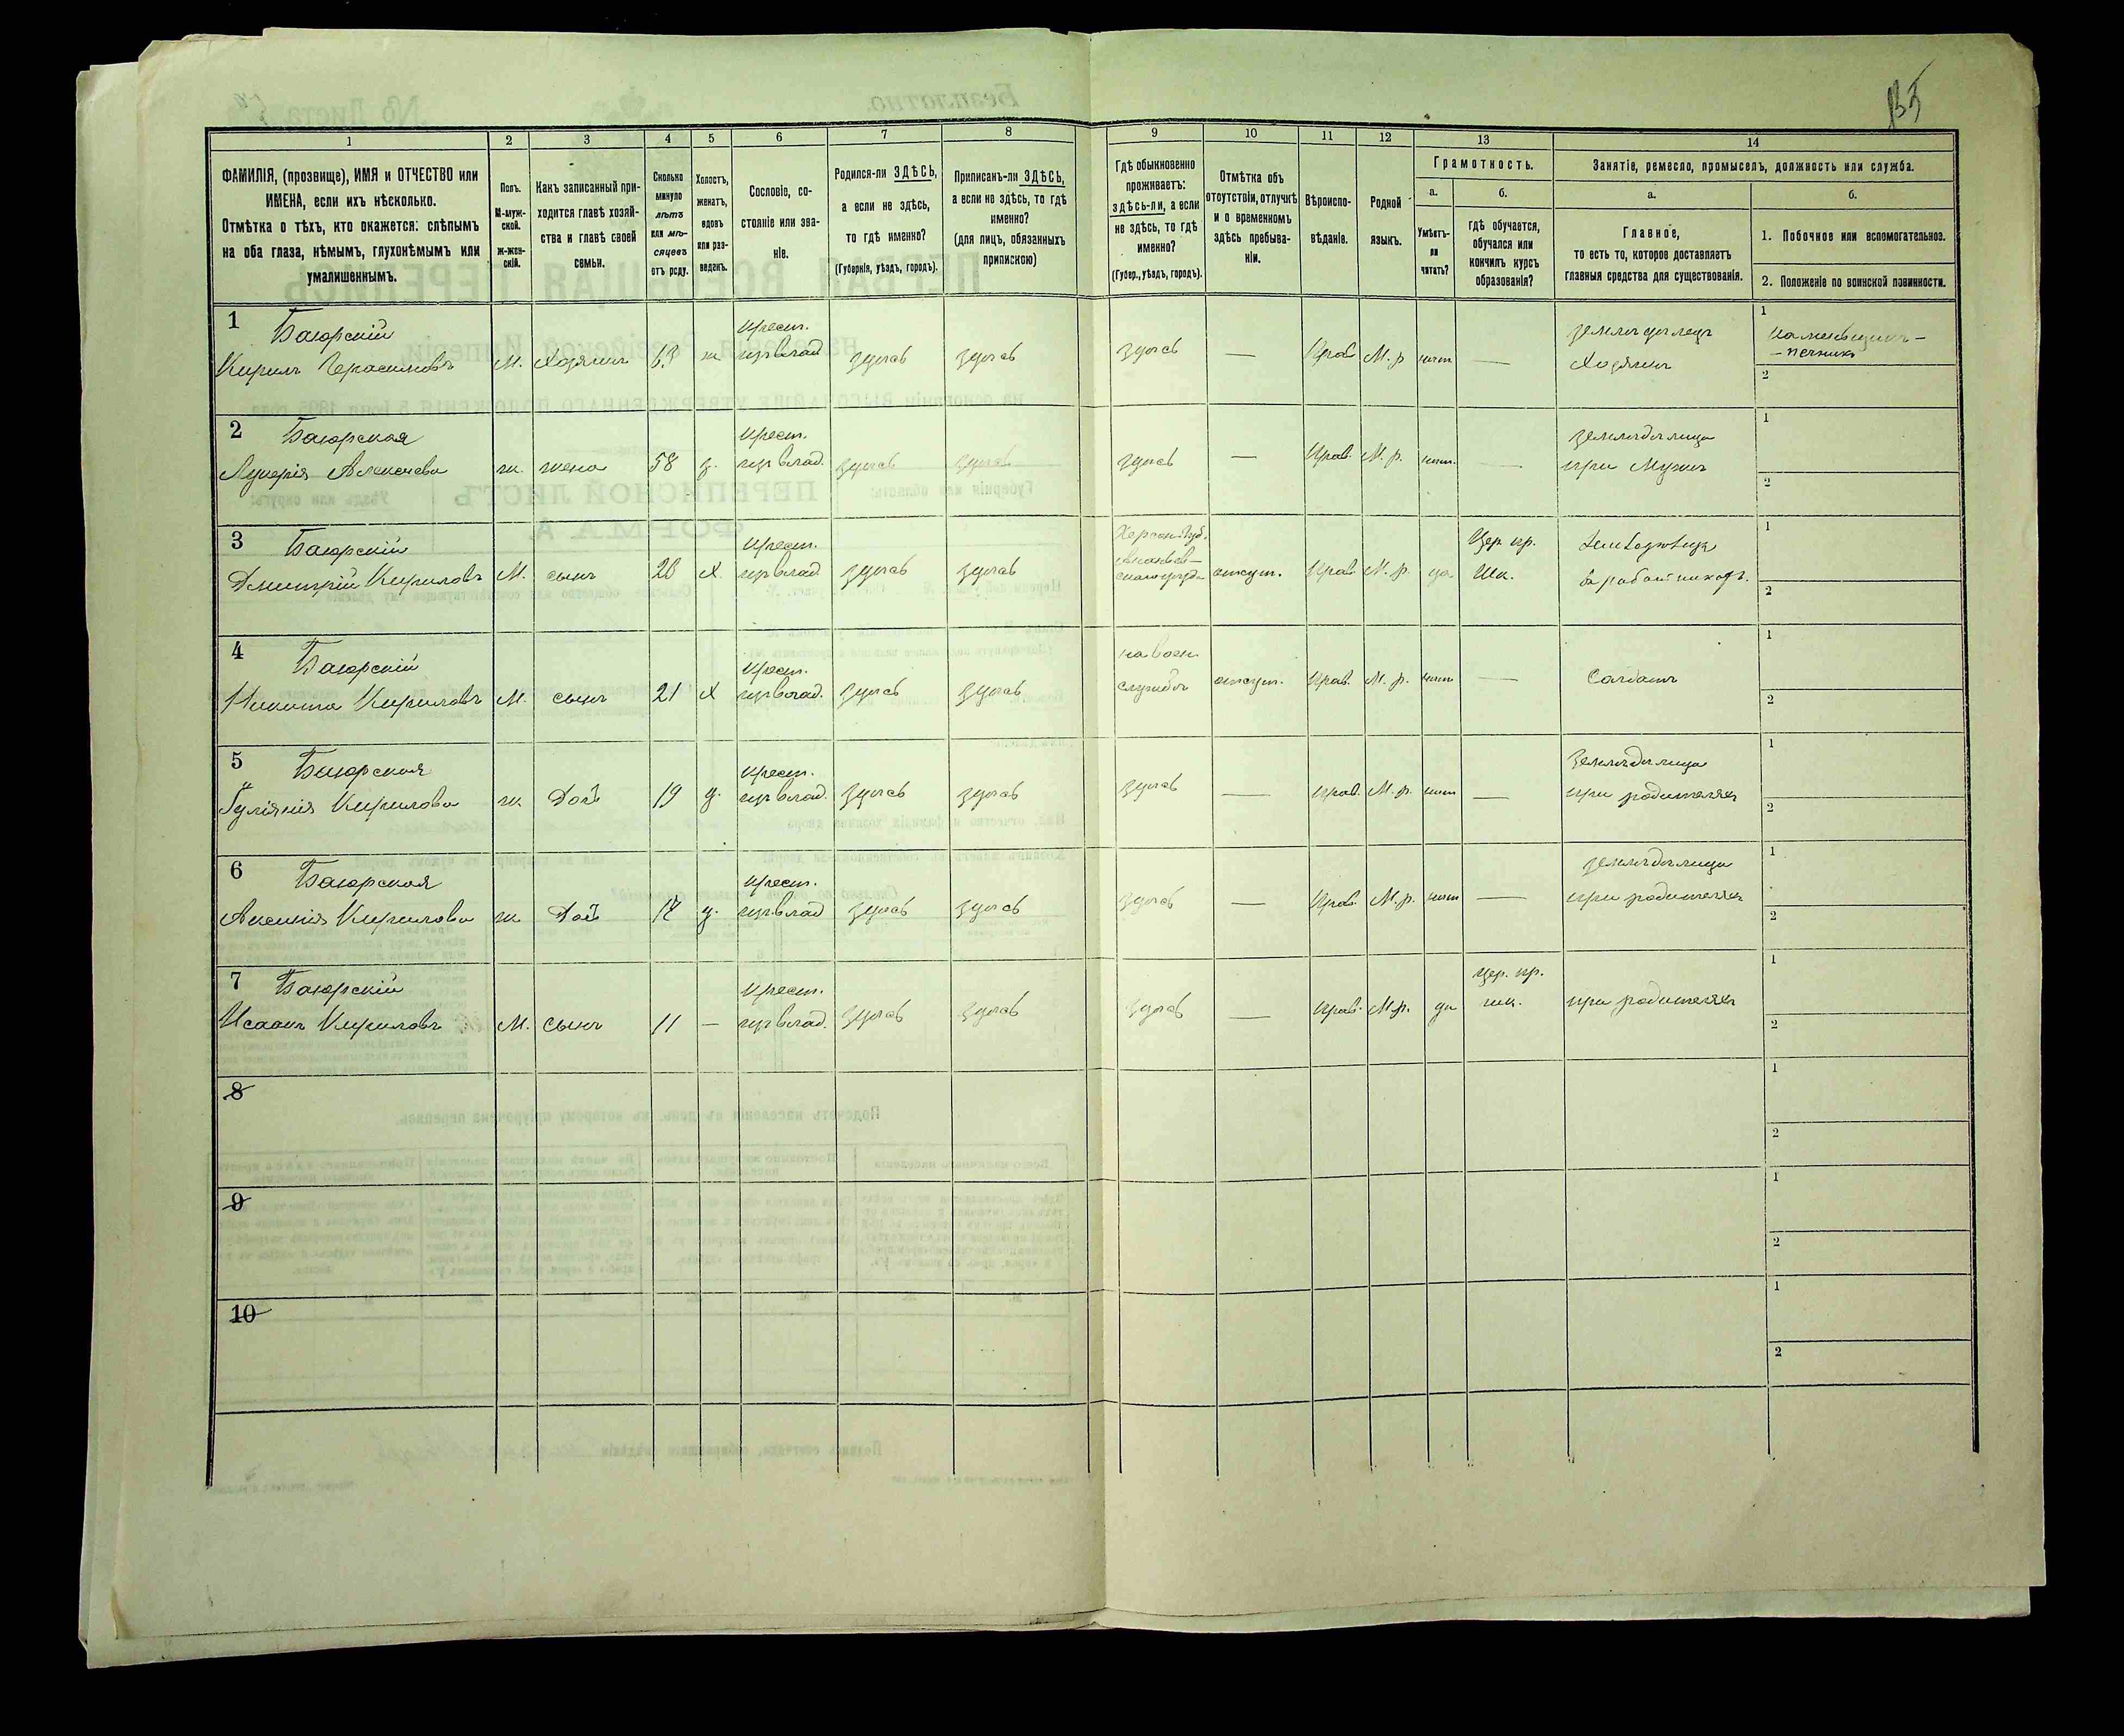 135
1
2
3
4
5
6
7
8
9
10
11
12
13
14
ФАМИЛІЯ, (прозвище), ИМЯ и ОТЧЕСТВО или
ИМЕНА, если ихъ нѣсколько.
Отмѣтка о тѣхъ, кто окажется: слѣпымъ
на оба глаза, нѣмымъ, глухонѣмымъ или
умалишеннымъ.
Полъ.
М-муж-
ской.
ж-жен-
скій.
Какъ записанный при-
ходится главѣ хозяй-
ства и главѣ своей
семьи.
Сколько
минуло
лѣтъ
или мѣ-
сяцевъ
отъ роду.
Холостъ,
женатъ,
вдовъ
или раз-
веденъ.
Сословіе, со-
стояніе или зва-
ніе.
Родился-ли ЗДѢСЬ,
а если не здѣсь,
то гдѣ именно?
(Губернія, уѣздъ, городъ).
Приписанъ-ли ЗДѢСЬ,
а если не здѣсь, то гдѣ
именно?
(для лицъ, обязанныхъ
припискою)
Гдѣ обыкновенно
проживаетъ:
здѣсь-ли, а если
не здѣсь, то гдѣ
именно?
(Губер., уѣздъ, городъ).
Отмѣтка объ
отсутствіи, отлучкѣ
и о временномъ
здѣсь пребыва-
ніи.
Вѣроиспо-
вѣданіе.
Родной
языкъ.
Грамотность.
а.
Умѣетъ-
ли
читать?
б.
Гдѣ обучается,
обучался или
кончилъ курсъ
образованія?
Занятіе, ремесло, промыселъ, должность или служба.
а.
Главное,
то есть то, которое доставляетъ
главныя средства для существованія.
б.
1. Побочное или вспомогательное.
2. Положеніе по воинской повинности.
1 Баюрскій
Кирилъ Герасимовъ М. Хозяинъ 63 ж
крест.
здѣсь здѣсь здѣсь — Прав. М. р нѣт —
Хозяинъ
1
- печникъ
2
2 Баюрская
Лукерія Алексѣева ж. жена 58 з.
крест.
здѣсь здѣсь здѣсь — Прав. М. р. нѣт. —
при Мужѣ
1
2
3 Баюрскій
Дмитрій Кириловъ М. сынъ 26 Х
крест.
здѣсь здѣсь
Херсон. Губ.
отсут. Прав М. р. да
Цер. пр.
Шк.
1
2
4 Баюрскій
Никита Кириловъ М. сынъ 21 Х
крест.
здѣсь здѣсь
на воен.
службѣ
отсут. Прав. М. р. нѣт —
Салдатъ
1
2
5 Баюрская
Гуліянія Кирилова ж Доч 19 д.
крест.
здѣсь здѣсь здѣсь — Прав. М. р. нѣт —
при родителях
1
2
6 Баюрская
Аксенія Кирилова ж Доч 17 д.
крест.
здѣсь здѣсь здѣсь — Прав. М. р. нѣт —
при родителях
1
2
7 Баюрскій
Исаакъ Кириловъ М. сынъ 11 —
крест.
здѣсь здѣсь здѣсь — Прав. М. р. да
Цер. пр.
шк.
при родителях
1
2
8
1
2
9
1
2
10
1
2